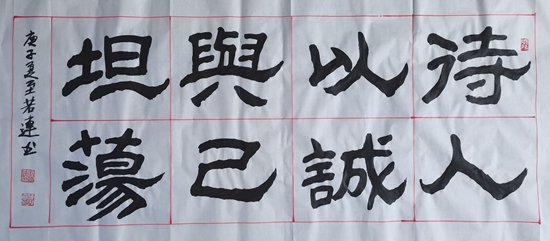 待人
以誠
與己
坦蕩
庚子夏至若連书